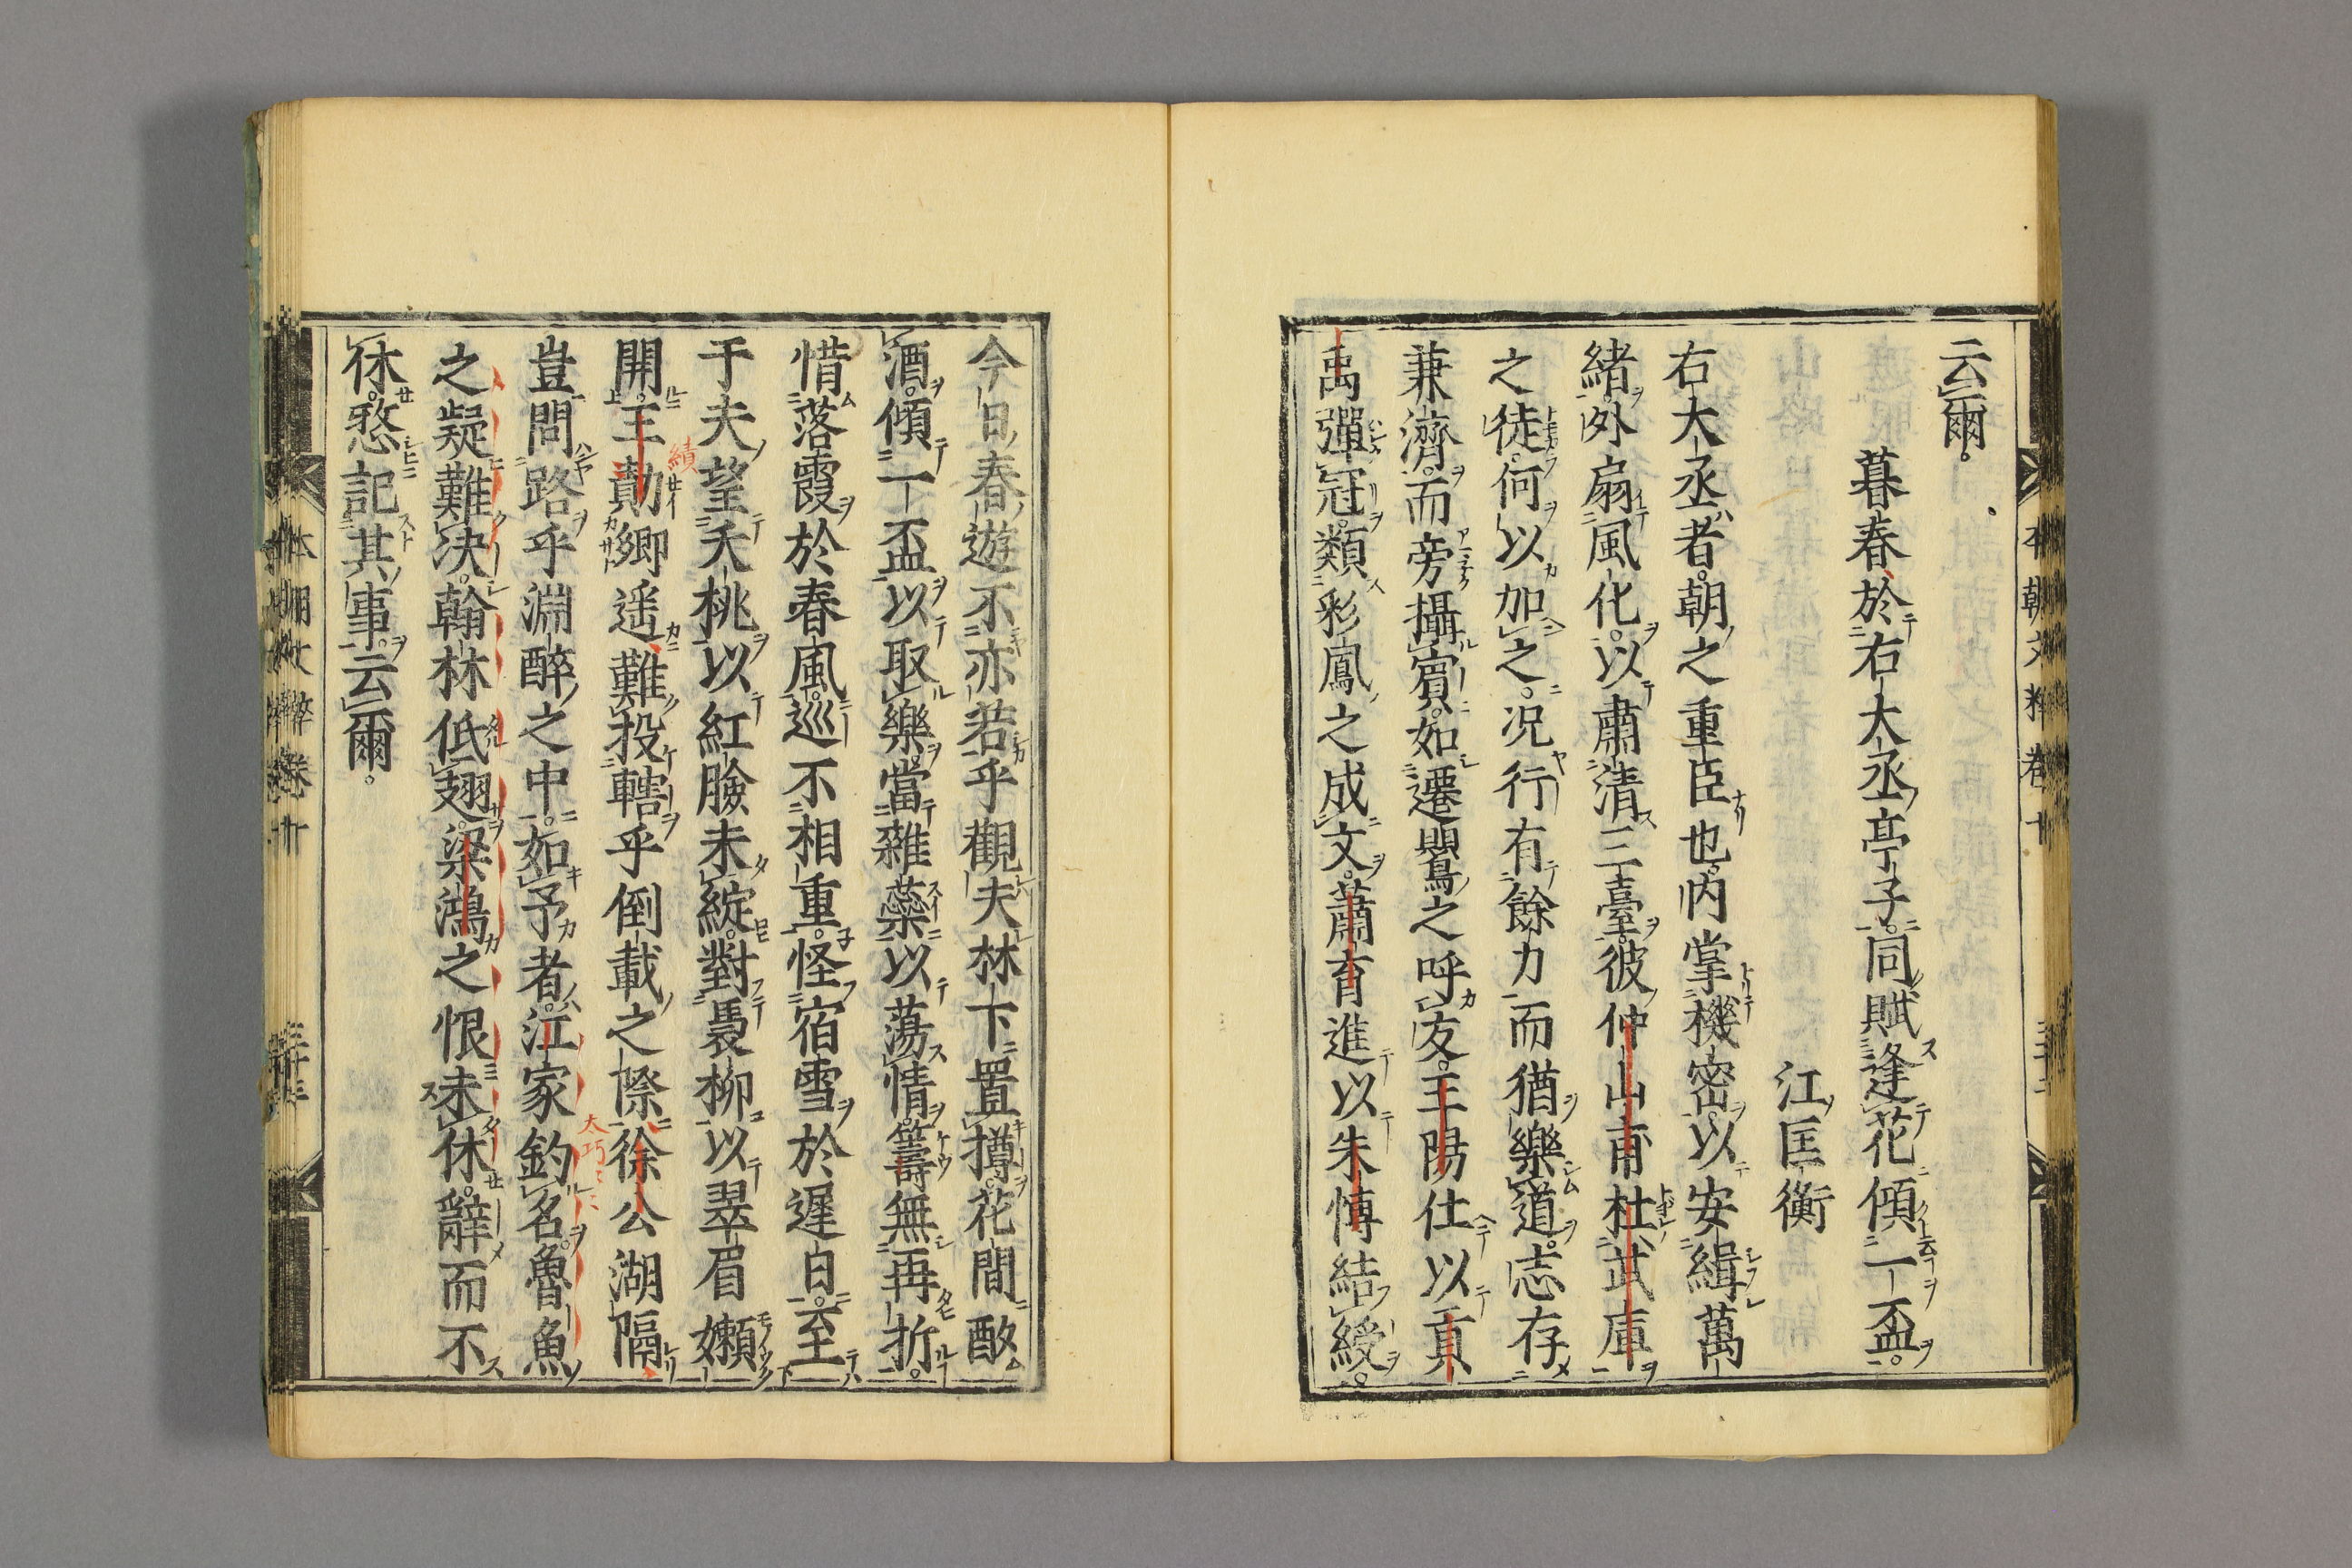 云爾。
暮春於右大丞亭子同賦逢花傾一盃。
江匡衡
右大丞者。朝之重臣也。内掌機密。以安緝萬
緒。外扇風化。以肅清三臺。彼仲山甫杜武庫
之徒。何以加之。況行有餘力而猶樂道。志存
兼濟。而旁攝賓。如遷鸎之呼友。王陽仕以貢
禹彈冠。類彩鳳之成文。蕭育進以朱博結綬。
今日春遊不亦若乎觀夫林下置樽。花間酌
酒。傾一盃以取樂。當雜蘂以蕩情。籌無再折。
惜落霞於春風。巡不相重。怪宿雪於遲日。至
于夫望夭桃以紅臉未綻。對晏柳以翠眉嬾
開。王勣鄉遥難投轄乎倒載之際。徐公湖隔
豈問路乎淵醉之中。如予者。江家釣名。魯魚
之疑難決。翰林低翅。梁鴻之恨未休。辭而不
休。慗記其事。云爾。
本朝文粹卷十
三十三